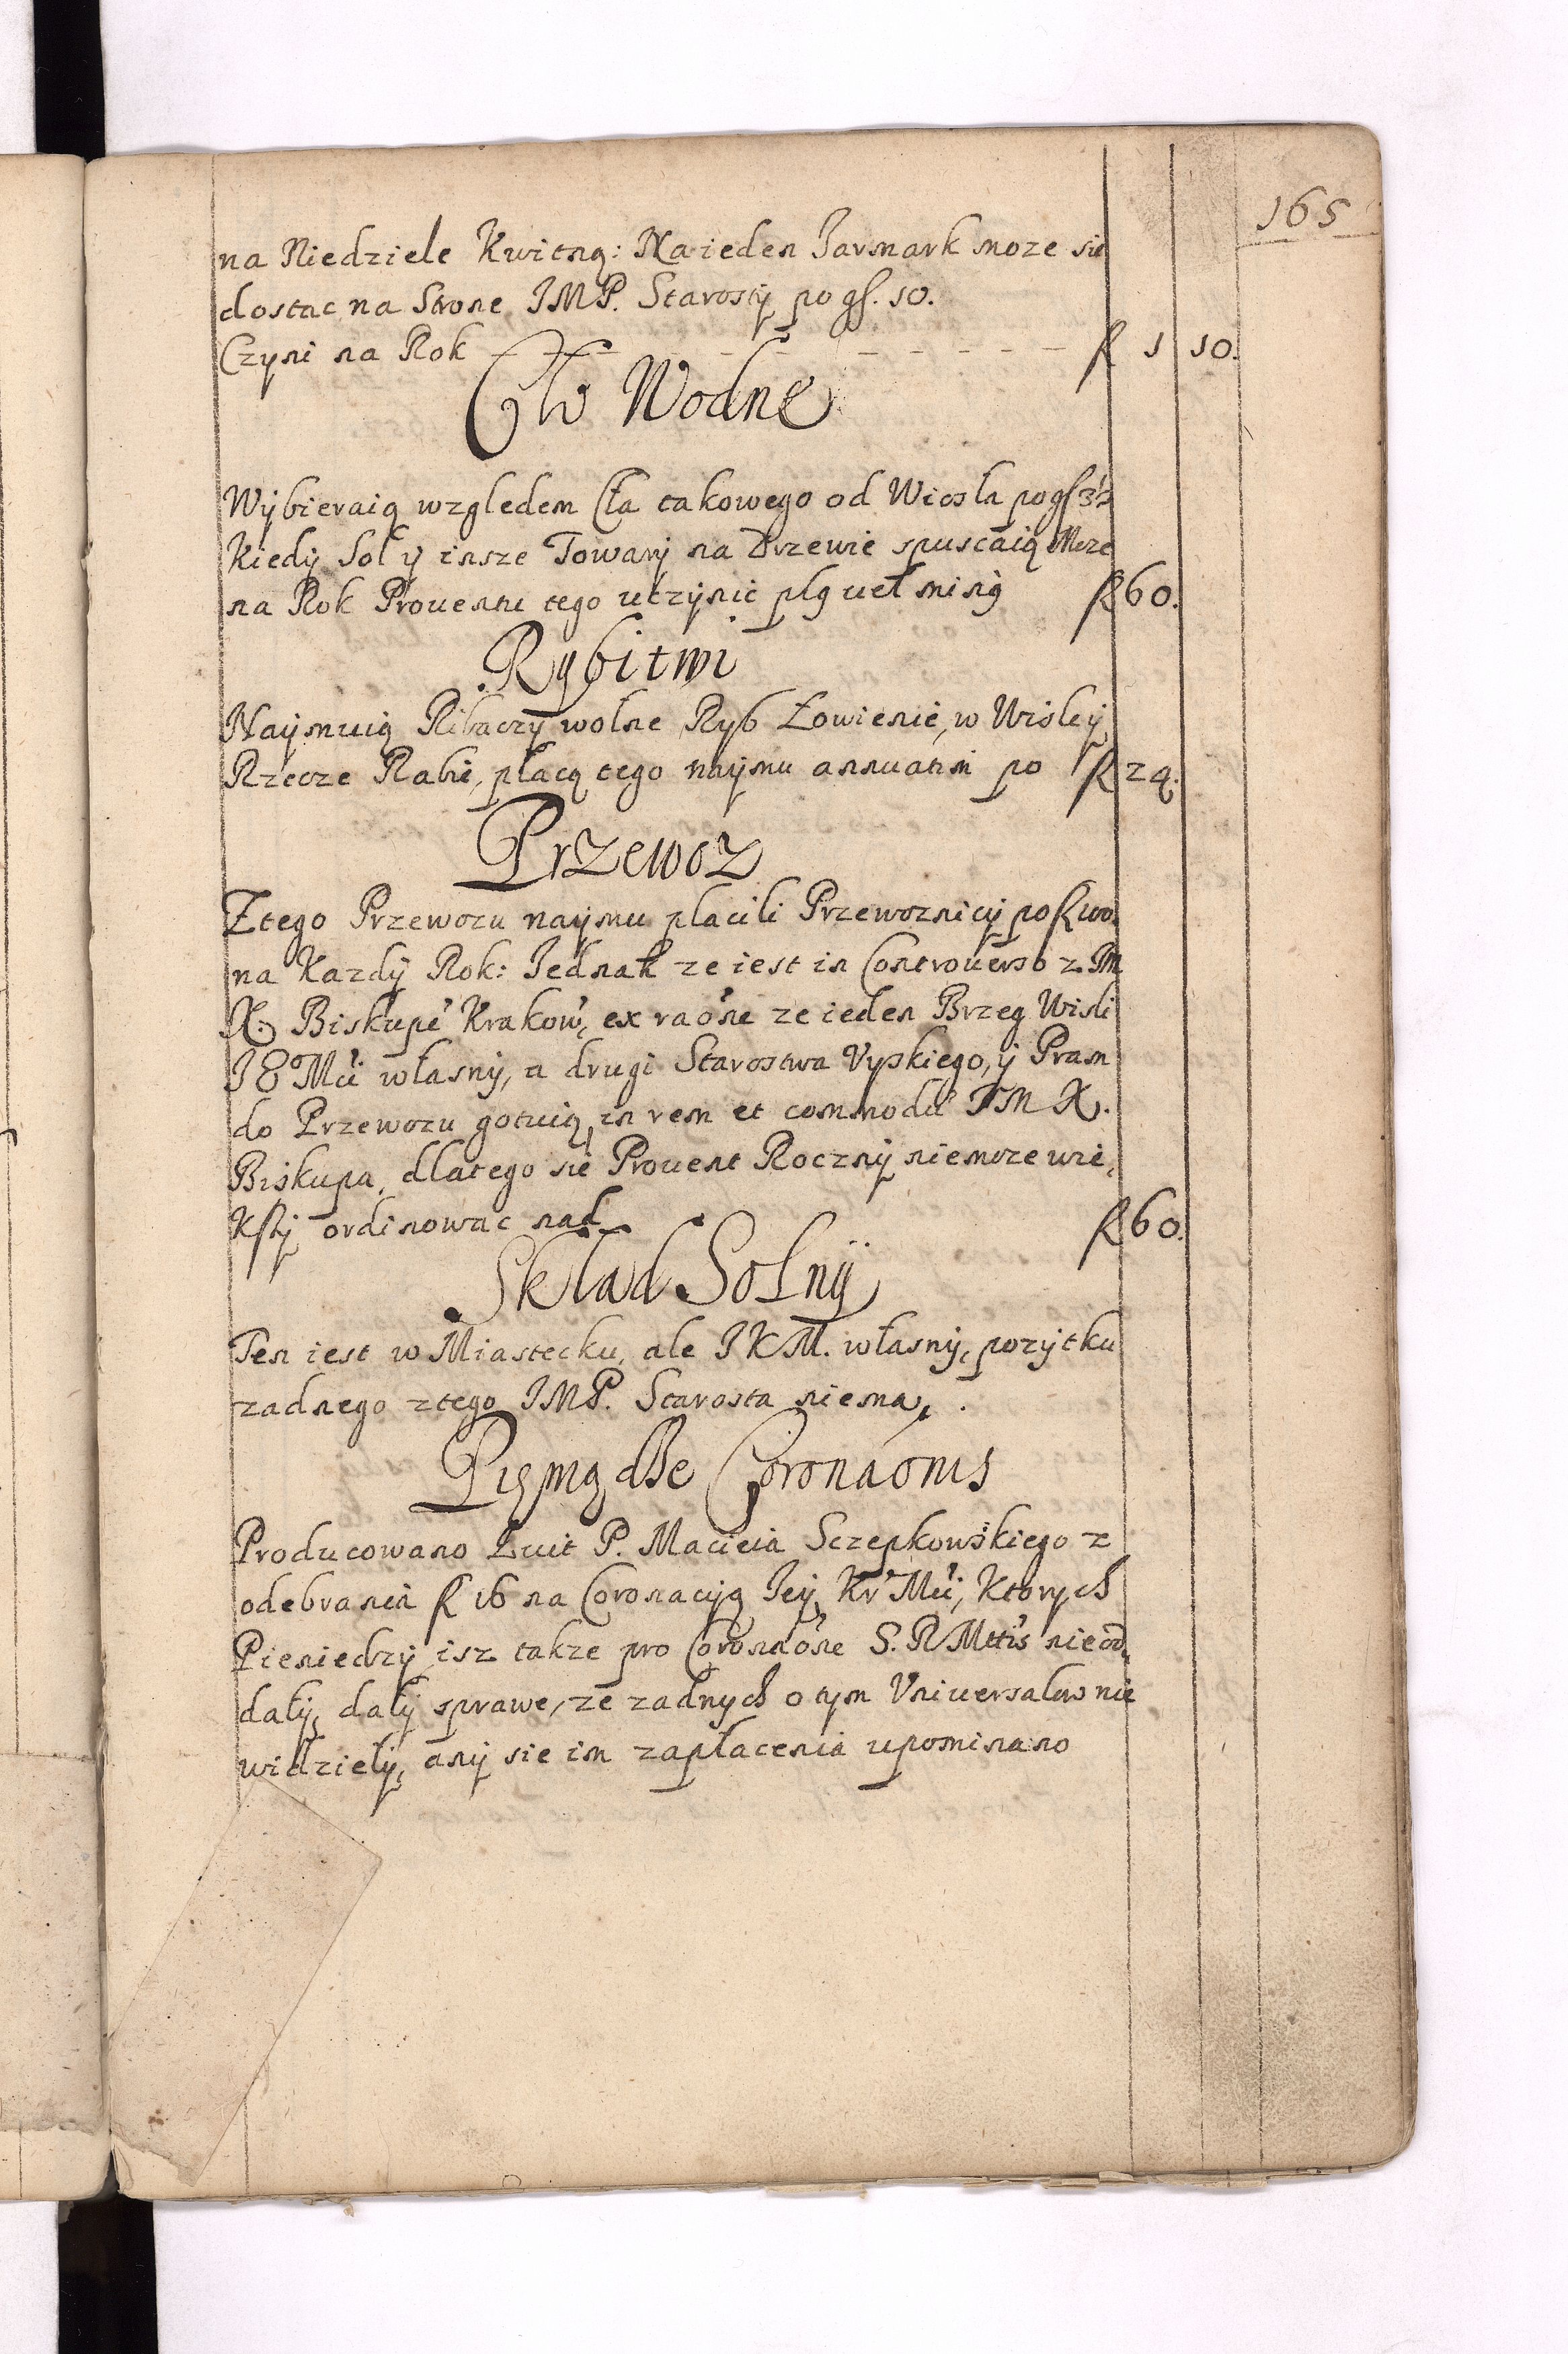 165
na Niedziele Kwitną: Na ieden Jarmark moze sie
dostac na Strone JMP. Starosty po gs. 10.
Czyni na Rok - - - - - - - - - fl 1 10.
Cło Wodne
Wybieraią względem Cła takowego od Wiosła po gs
Kiedy Sol y insze Towary na Drzewie spuscaią Moze
na Rok Prouentu tego uczynic plq uel min9 fl 60.
Rybitwi
Naymuią Ribaczy wolne Ryb Łowienie, w Wisley
Rzecze Rabie, płacą tego naymu annuatim po fl 24.
Przewoz
Z tego Przewozu naymu placili Przewoznicy po fl 100
na Kazdy Rok: Jednak ze iest in Controuerso z Jm
X. Biskupe Krakow, ex raone ze ieden Brzeg Wisli
JE Mci własny, a drugi Starostwa Vyskiego, y Pram
do Przewozu gotuią, in rem et commodu JM X.
Biskupa, dlatego sie Prouent Roczny niemoze wie,
kszy ordinowac nad fl 60.
Skład Solny
Ten iest w Miastecku, ale JKM. własny, pozytku
zadnego z tego JMP. Starosta niema, .
Coronaonis
Producowano kwit P. Macieia Sczepkowskiego z
odebrania fl 16 na Coronacyą Jey Kr Mci, Ktorych
Pieniedzy isz takze pro Coronaone S. R Mttis nieod,
daly, daly sprawe, ze zadnych o tym Vniuersalow nie
widziely, any sie im zapłacenia upominano